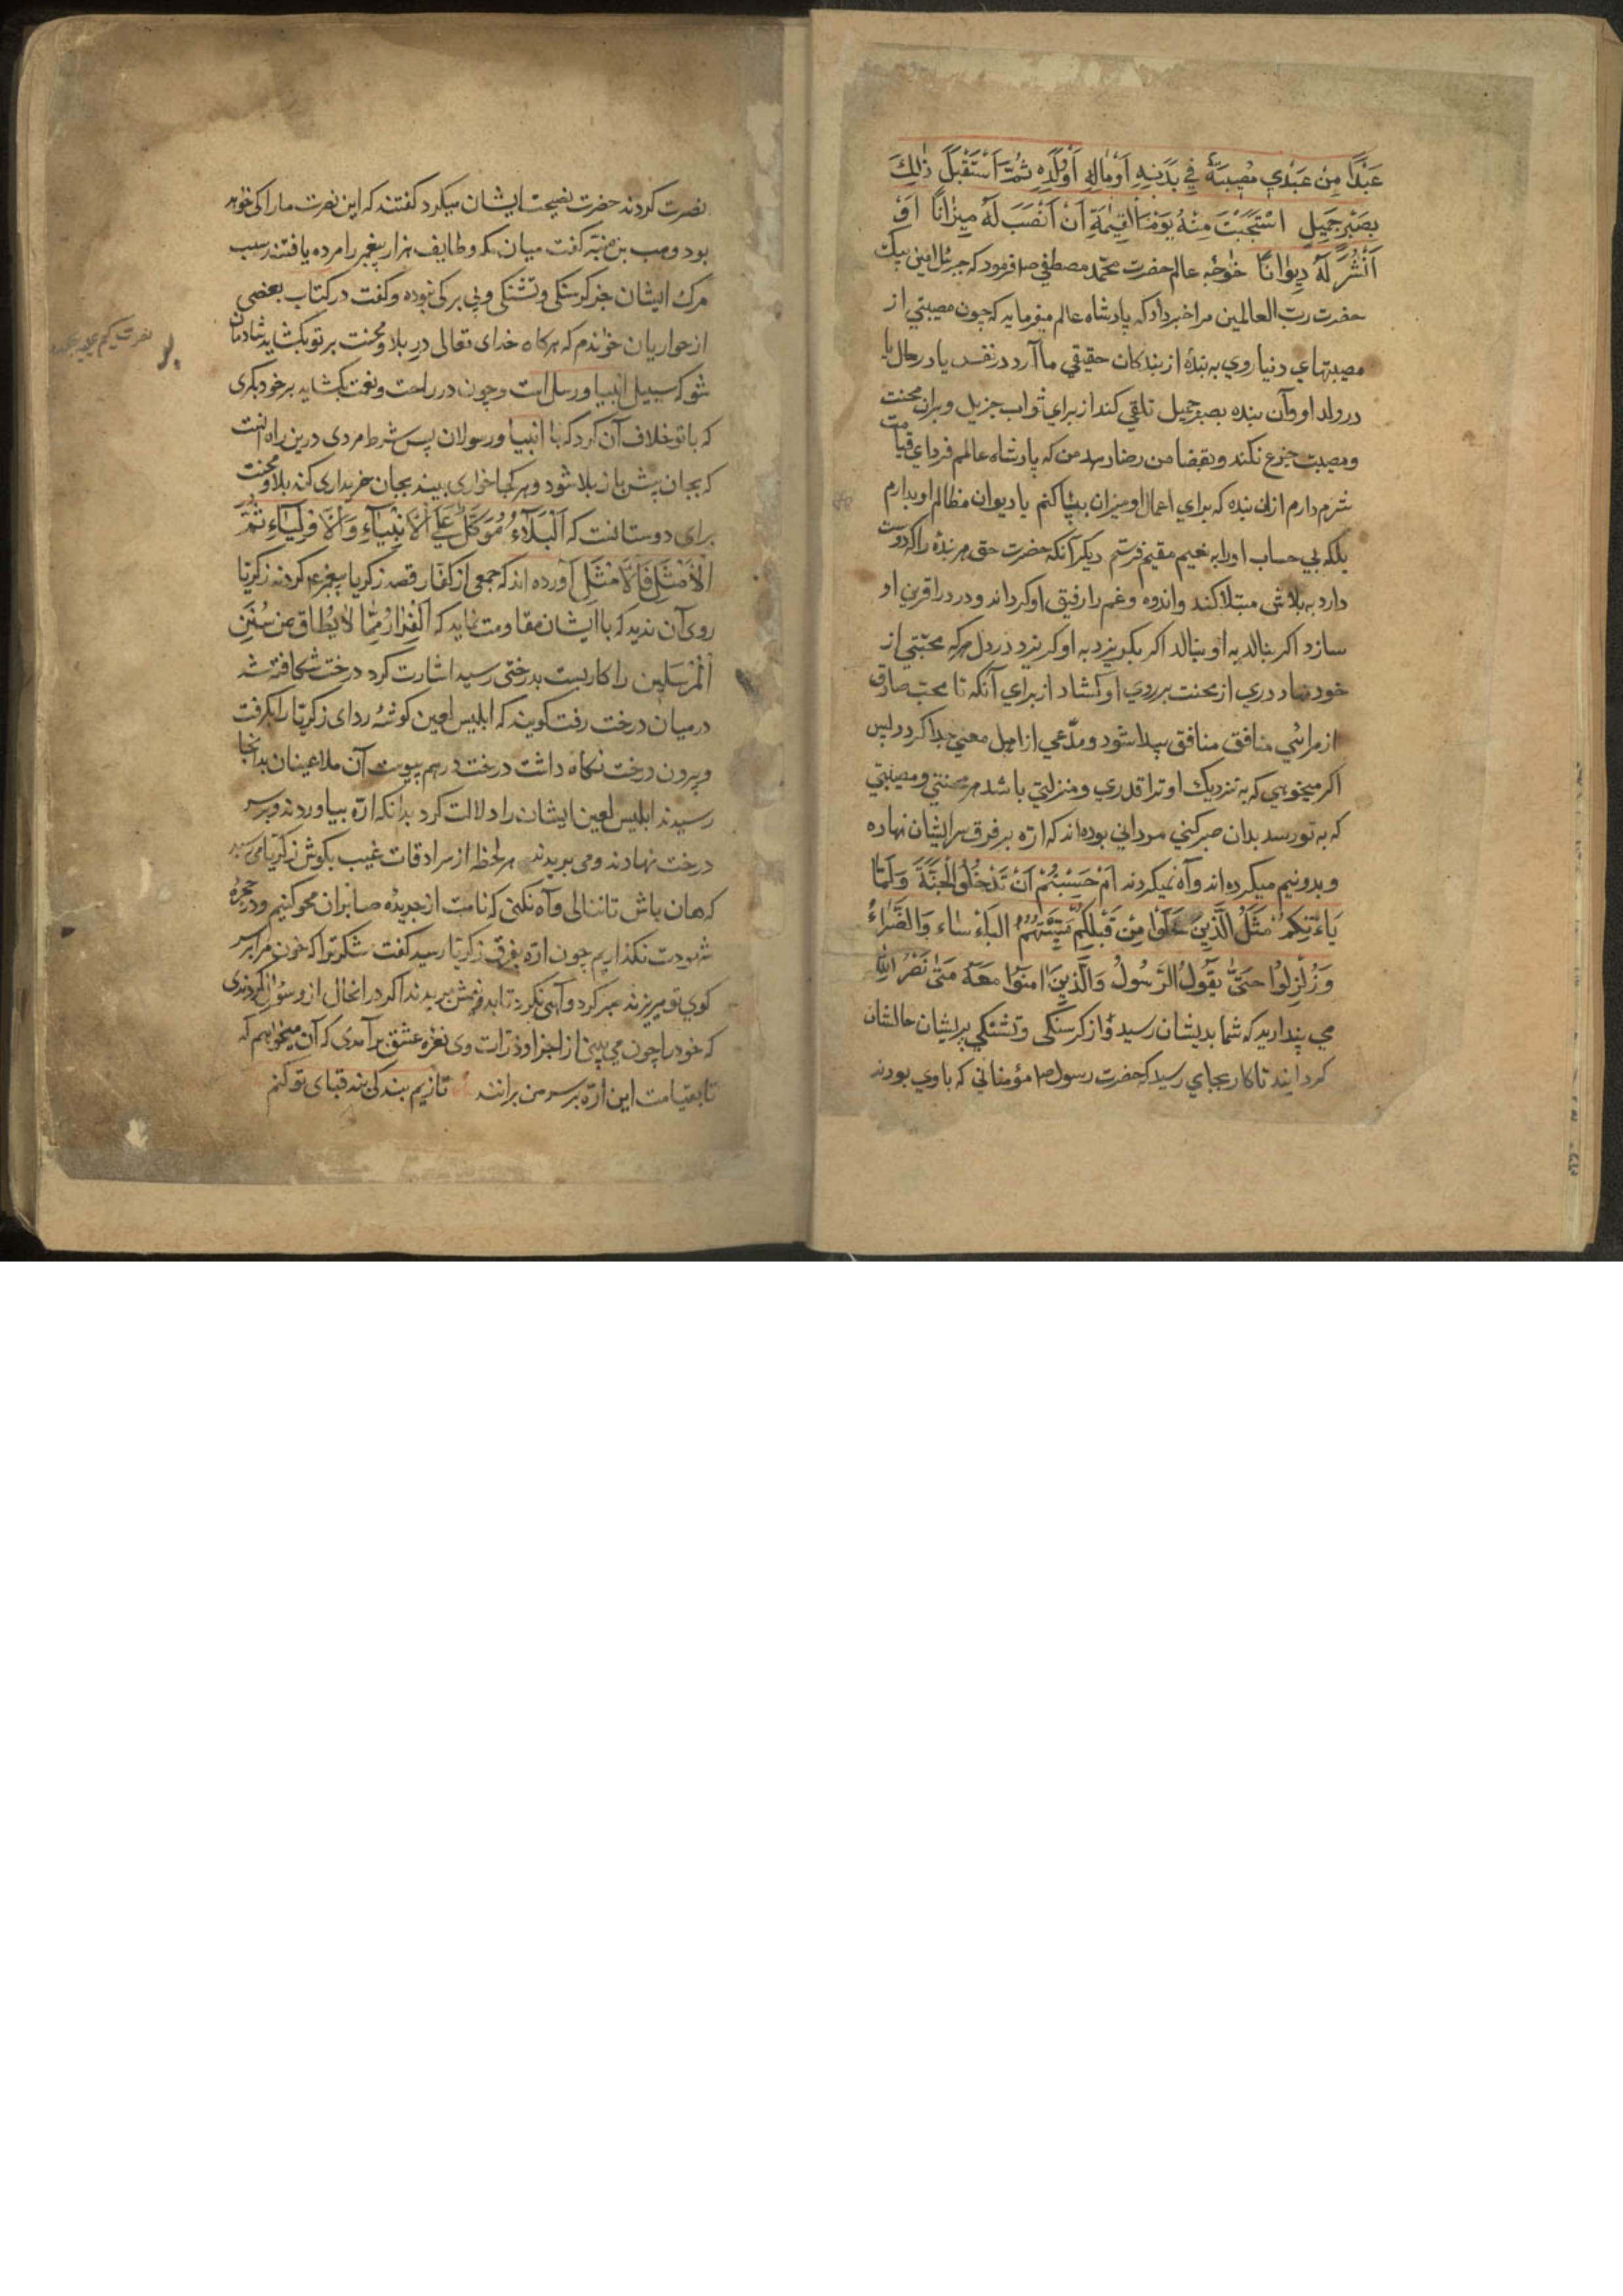 عَبْدًا مِنْ عَبْدِي مُصِيبَةً فِي بَدَنِهِ اَوْمَالِهِ اَوْوَلَدِهِ ثُمَّ اَسْتَقْبَلَ ذٰلِكَ
بِصَبْرٍ جَمِيلٍ اسْتَحْيَيْتُ مِنْهُ يَوْمَ الْقِيٰمَةِ اَنْ اَنْصَبَ لَهُ مِيزَانًا اَوْ
اَنْشُرَ لَهُ دِيوَانًا خواجه عالم حضرت محمّد مصطفي ص فرمود كه جبرئل امين پيك
حضرت ربّ العالمين مرا خبر داد كه پادشاه عالم ميفرمايد كه چون مصيبتي از
مصيبتهاي دنيا روي به بندهٔ از بندكان حقيقي ما آرد در نفس يا در مال يا
در ولد او و آن بنده بصبر جميل تلقي كند از براي ثواب جزيل و بران محنت
و مصيبت جزع نكند و بقضا من رضا دهد من كه پادشاه عالمم فرداي قيامت
شرم دارم ازان بنده كه براي اعمال او ميزان بپا كنم يا ديوان مظالم او بدارم
بلكه بي حساب او را به نعيم مقيم فرستم ديكر آنكه حضرت حق هر بندهٔ را كه دوست
دارد به بلائي مبتلا كند و اندوه و غم را رفيق او كرداند و درد را قرين او
سازد اكر بنالد به او بنالد اكر بكريزد به او كريزد در دل هركه محبّتي از
خود نهاد دري از محنت بر روي او كشاد از براي آنكه تا محبّ صادق
از مرائي منافق منافق پيدا شود و مدّعي از اهل معني جدا كردد پس
اكر ميخوهي كه به نزديك او ترا قدري و منزلتي باشد هر محنتي و مصيبتي
كه به تو رسد بدان صبر كني مرداني بوده اند كه ارّه بر فرق سر ايشان نهاده
و بدونيم ميكرده اند و آه نميكردند اَمْ حَسِبْتُمْ اَنْ تَدْخُلُوا الْجَنَّةَ وَلَمَّا
يَأْتِكُمْ مَثَلُ الَّذِينَ خَلَوْا مِنْ قَبْلِكُمْ مَسَّتْهُمُ الْبَأْسَاء وَالضَّرَّاءُ
وَزُلْزِلُوا حَتّٰى يَقُولُ الرَّسُولُ وَالَّذِينَ اٰمَنُوا مَعَهُ مَتٰى نَصْرُ اللهِ
مي پنداريد كه شما بديشان رسيد و از كرسنكي و تشنكي پريشان حالشان
كردانيد تا كار بجاي رسيد كه حضرت رسول ص مؤمناني كه با وي بودند
نصرت كردند حضرت نصيحت ايشان ميكرد كفتند كه اين نصرت ما را كي خوهد
بود وهب بن منبّه كفت ميان مكه و طايف هزار پيغمبر را مرده يافتند سبب
مرك ايشان جز كرسنكي و تشنكي و بي بركي نبوده و كفت در كتاب بعضي
از حواريان خواندم كه هركاه خداي تعالى در بلا و محنت بر تو بكشايد شادمان
شو كه سبيل انبيا و رسل است و چون در راحت و نعمت بكشايد بر خود بكري
كه با تو خلاف آن كرد كه با انبيا و رسولان پس شرط مردي درين راه آنست
كه بجان پيش باز بلا شود و هر كجا خواري بيند بجان خريداري كند بلا و محنت
براي دوستانست كه اَلْبَلَاءُ مُوَكَّلٌ عَلَى الْاَنْبِيَاءِ وَالْاَوْلِيَاءِ ثُمَّ
الْاَمْثَلِ فَالْاَمْثَلِ آورده اند كه جمعي از كفار قصد زكريا پيغمبر ع م كردند زكريا
روي آن نديد كه با ايشان مقاومت نمايد كه اَلْفِرَارُ مِمَّا لَايُطَاق مِنْ سُنَنِ
الْمُرْسَلِين را كار بست بدرختي رسيد اشارت كرد درخت شكافته شد
در ميان درخت رفت كويند كه ابليس لعين كوشهٔ رداي زكريا را بكرفت
و بيرون درخت نكاه داشت درخت در هم پيوست آن ملاعينان بدانجا
رسيدند ابليس لعين ايشان را دلالت كرد بدانكه ارّه بياوردند و بر سر
درخت نهادند و مي بريدند هر لحظه از سرادقات غيب بكوش زكريا مي رسيد
كه هان باش تا ننالي و آه نكني كه نامت از جريدهٔ صابران محو كنيم و در حجرهٔ
شهودت نكذاريم چون ارّه بفرق زكريا رسيد كفت شكر ترا كه خون مرا بر سر
كوي تو ميريزند صبر كرد و آهي نكرد تا بدو نيمش بريدند اكر در انحال از و سؤال كردندي
كه خود را چون مي بيني از اجزا و ذرات وي نعره عشق برآمدي كه آن ميخواهم كه
تا بقيامت اين ارّه بر سر من برانند تا زيم بندكي بند قباي تو كنم